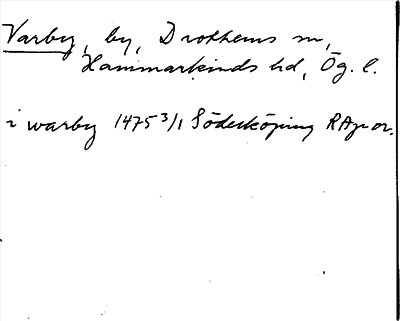 Varby, by, Drothems sn,
Hammarkinds hd, Ög. l.
i warby 1475 3/1 Söderköping RAp or.